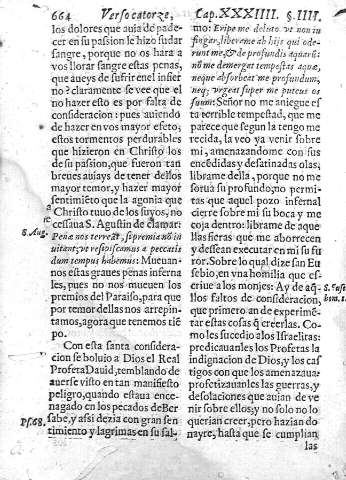 664 Verso catorze,
los dolores que auia de pade-
cer en su passion le hizo sudar
sangre, porque no os hara a
vos llorar sangre estas penas,
que aueys de sufrir en el infier
no? claramente se vee que el
no hazer esto es por falta de
consideracion: pues auiendo
de hazer en vos mayor efeto,
estos tormentos perdurables
que hizieron en Christo los
de su passion, que fueron tan
breues auiays de tener dellos
mayor temor, y hazer mayor
sentimiẽto que la agonia que
a Christo tuuo de los suyos, no
cessaua S. Agustin de clamar:
8. Aug.
Pena nos terreat, si premia nõ in
uitant; vt respiscamus a peccatis
dum tempus habemus: Mueuan-
nos estas graues penas inferna
les, pues no nos mueuen los
premios del Paraiso, para que
por temor dellas nos arrepin-
tamos, agora que tenemos tiẽ
po.
Con esta santa considera-
cion se boluio a Dios el Real
Profeta Dauid, temblando de
auerse visto en tan manifiesto
peligro, quando estaua ence-
nagado en los pecados de Ber
sabe, y assi dezia con gran sen
Ps. 68.
timiento y lagrimas en su sal-
Cap. XXXIIII. §. IIII.
mo: Eripe me de luto vt non in
figar, libera me ab hijs qui ode-
runt me, & de profundis aquarũ:
nõ me demergat tempestas aquæ,
neque absorbeat me profundum,
neq; vrgeat super me puteus os
suum: Señor no me aniegue es
ta terrible tempestad, que me
parece que segun la tengo me
recida, la veo ya venir sobre
mi, amenazandome con sus
encẽdidas y desatinadas olas,
librame della, porque no me
sorua su profundo, no permi-
tas que aquel pozo infernal
cierre sobre mi su boca y me
coja dentro: librame de aque
llas fieras que me aborrecen
y dessean executar en mi su fu
ror. Sobre lo qual dize san Eu
sebio, en vna homilia que es-
criue a los monjes: Ay de aq̃-
llos faltos de consideracion,
que primero an de experimẽ-
tar estas cosas q̃ creerlas. Co-
mo les sucedio a los Israelitas:
predicauanles los Profetas la
indignacion de Dios, y los cas
tigos con que los amenazaua:
profetizauanles las guerras, y
desolaciones que auian de ve-
nir sobre ellos; y no solo no lo
querian creer, pero hazian do
nayre, hasta que se cumplian
las